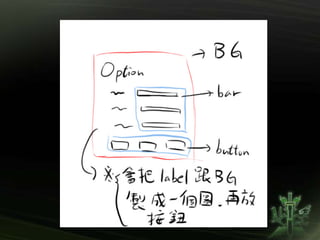 BG
Option
bar
button
※會把label跟BG
製成一個圖.再放
按鈕